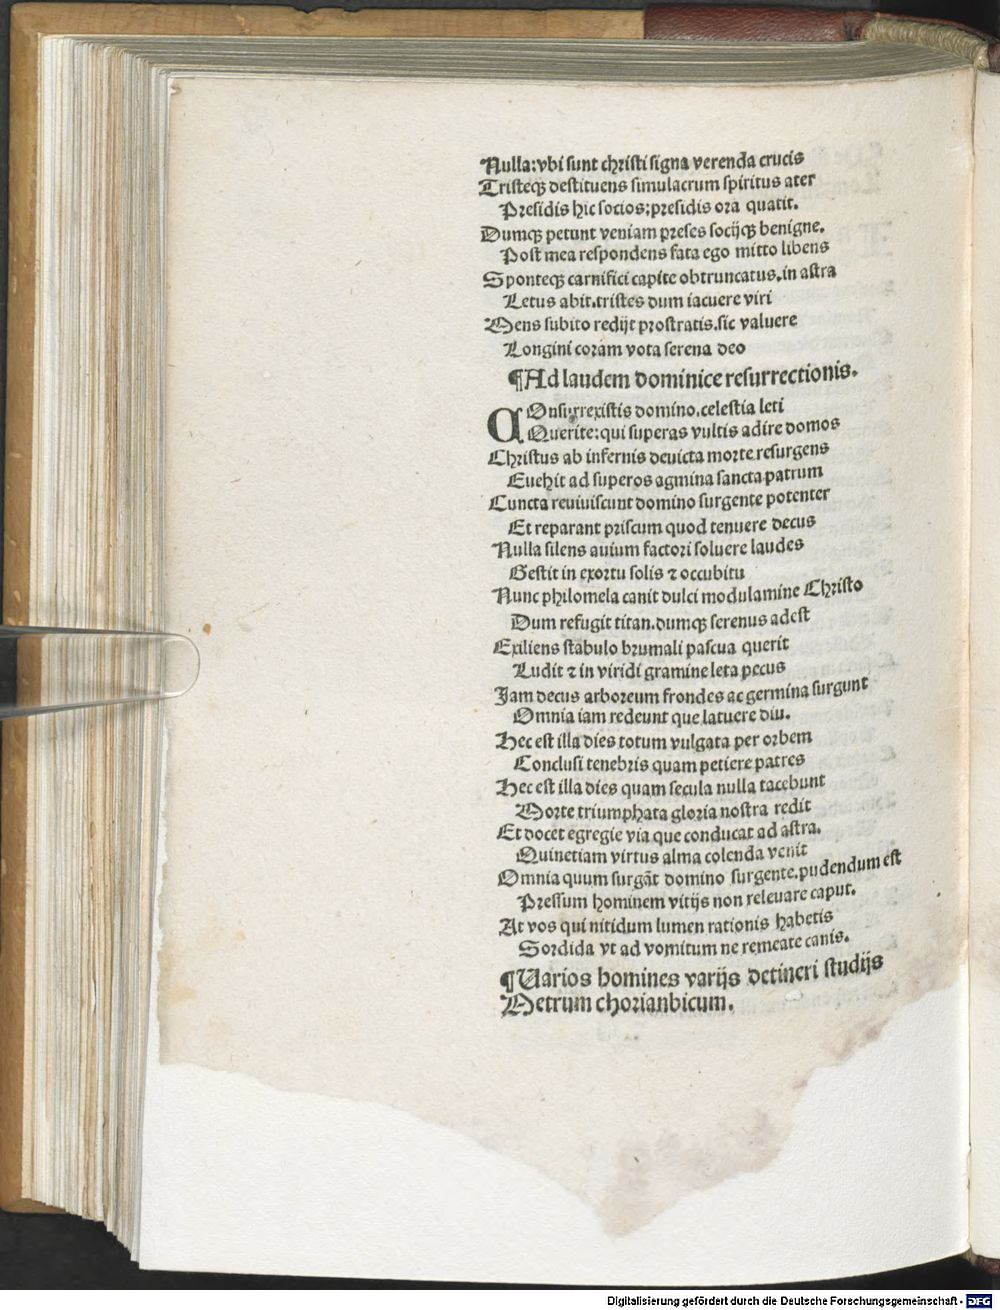 Nulla:vbi sunt christi signa verenda crucis
Tristeqꝫ destituens simulacrum spiritus ater
Presidis hic socios;presidis ora quatit.
Dumqꝫ petunt veniam preses socijqꝫ benigne.
Post mea respondens fata ego mitto libens
Sponteqꝫ carnifici capite obtruncatus.in astra
Letus abit.tristes dum iacuere viri
Mens subito redijt prostratis.sic valuere
Longini coram vota serena deo
¶Ad laudem dominice resurrectionis.
COnsurrexistis domino.celestia leti
Querite:qui superas vultis adire domos
Christus ab infernis deuicta morte resurgens
Euehit ad superos agmina sancta patrum
Cuncta reuiuiscunt domino surgente potenter
Et reparant priscum quod tenuere decus
Nulla silens auium factori soluere laudes
Gestit in exortu solis ⁊ occubitu
Nunc philomela canit dulci modulamine Christo
Dum refugit titan.dumqꝫ serenus adest
Exiliens stabulo brumali pascua querit
Ludit ⁊ in viridi gramine leta pecus
Jam decus arboreum frondes ac germina surgunt
Omnia iam redeunt que latuere diu.
Hec est illa dies totum vulgata per orbem
Conclusi tenebris quam petiere patres
Hec est illa dies quam secula nulla tacebunt
Morte triumphata gloria nostra redit
Et docet egregie via que conducat ad astra.
Quinetiam virtus alma colenda venit
Omnia quum surgāt domino surgente.pudendum est
Pressum hominem vitijs non releuare caput.
At vos qui nitidum lumen rationis habetis
Sordida vt ad vomitum ne remeate canis.
¶Uarios homines varijs detineri studijs
Metrum chorianbicum.
Digitalisierung gefördert durch die Deutsche Forschungsgemeinschaft - DFG